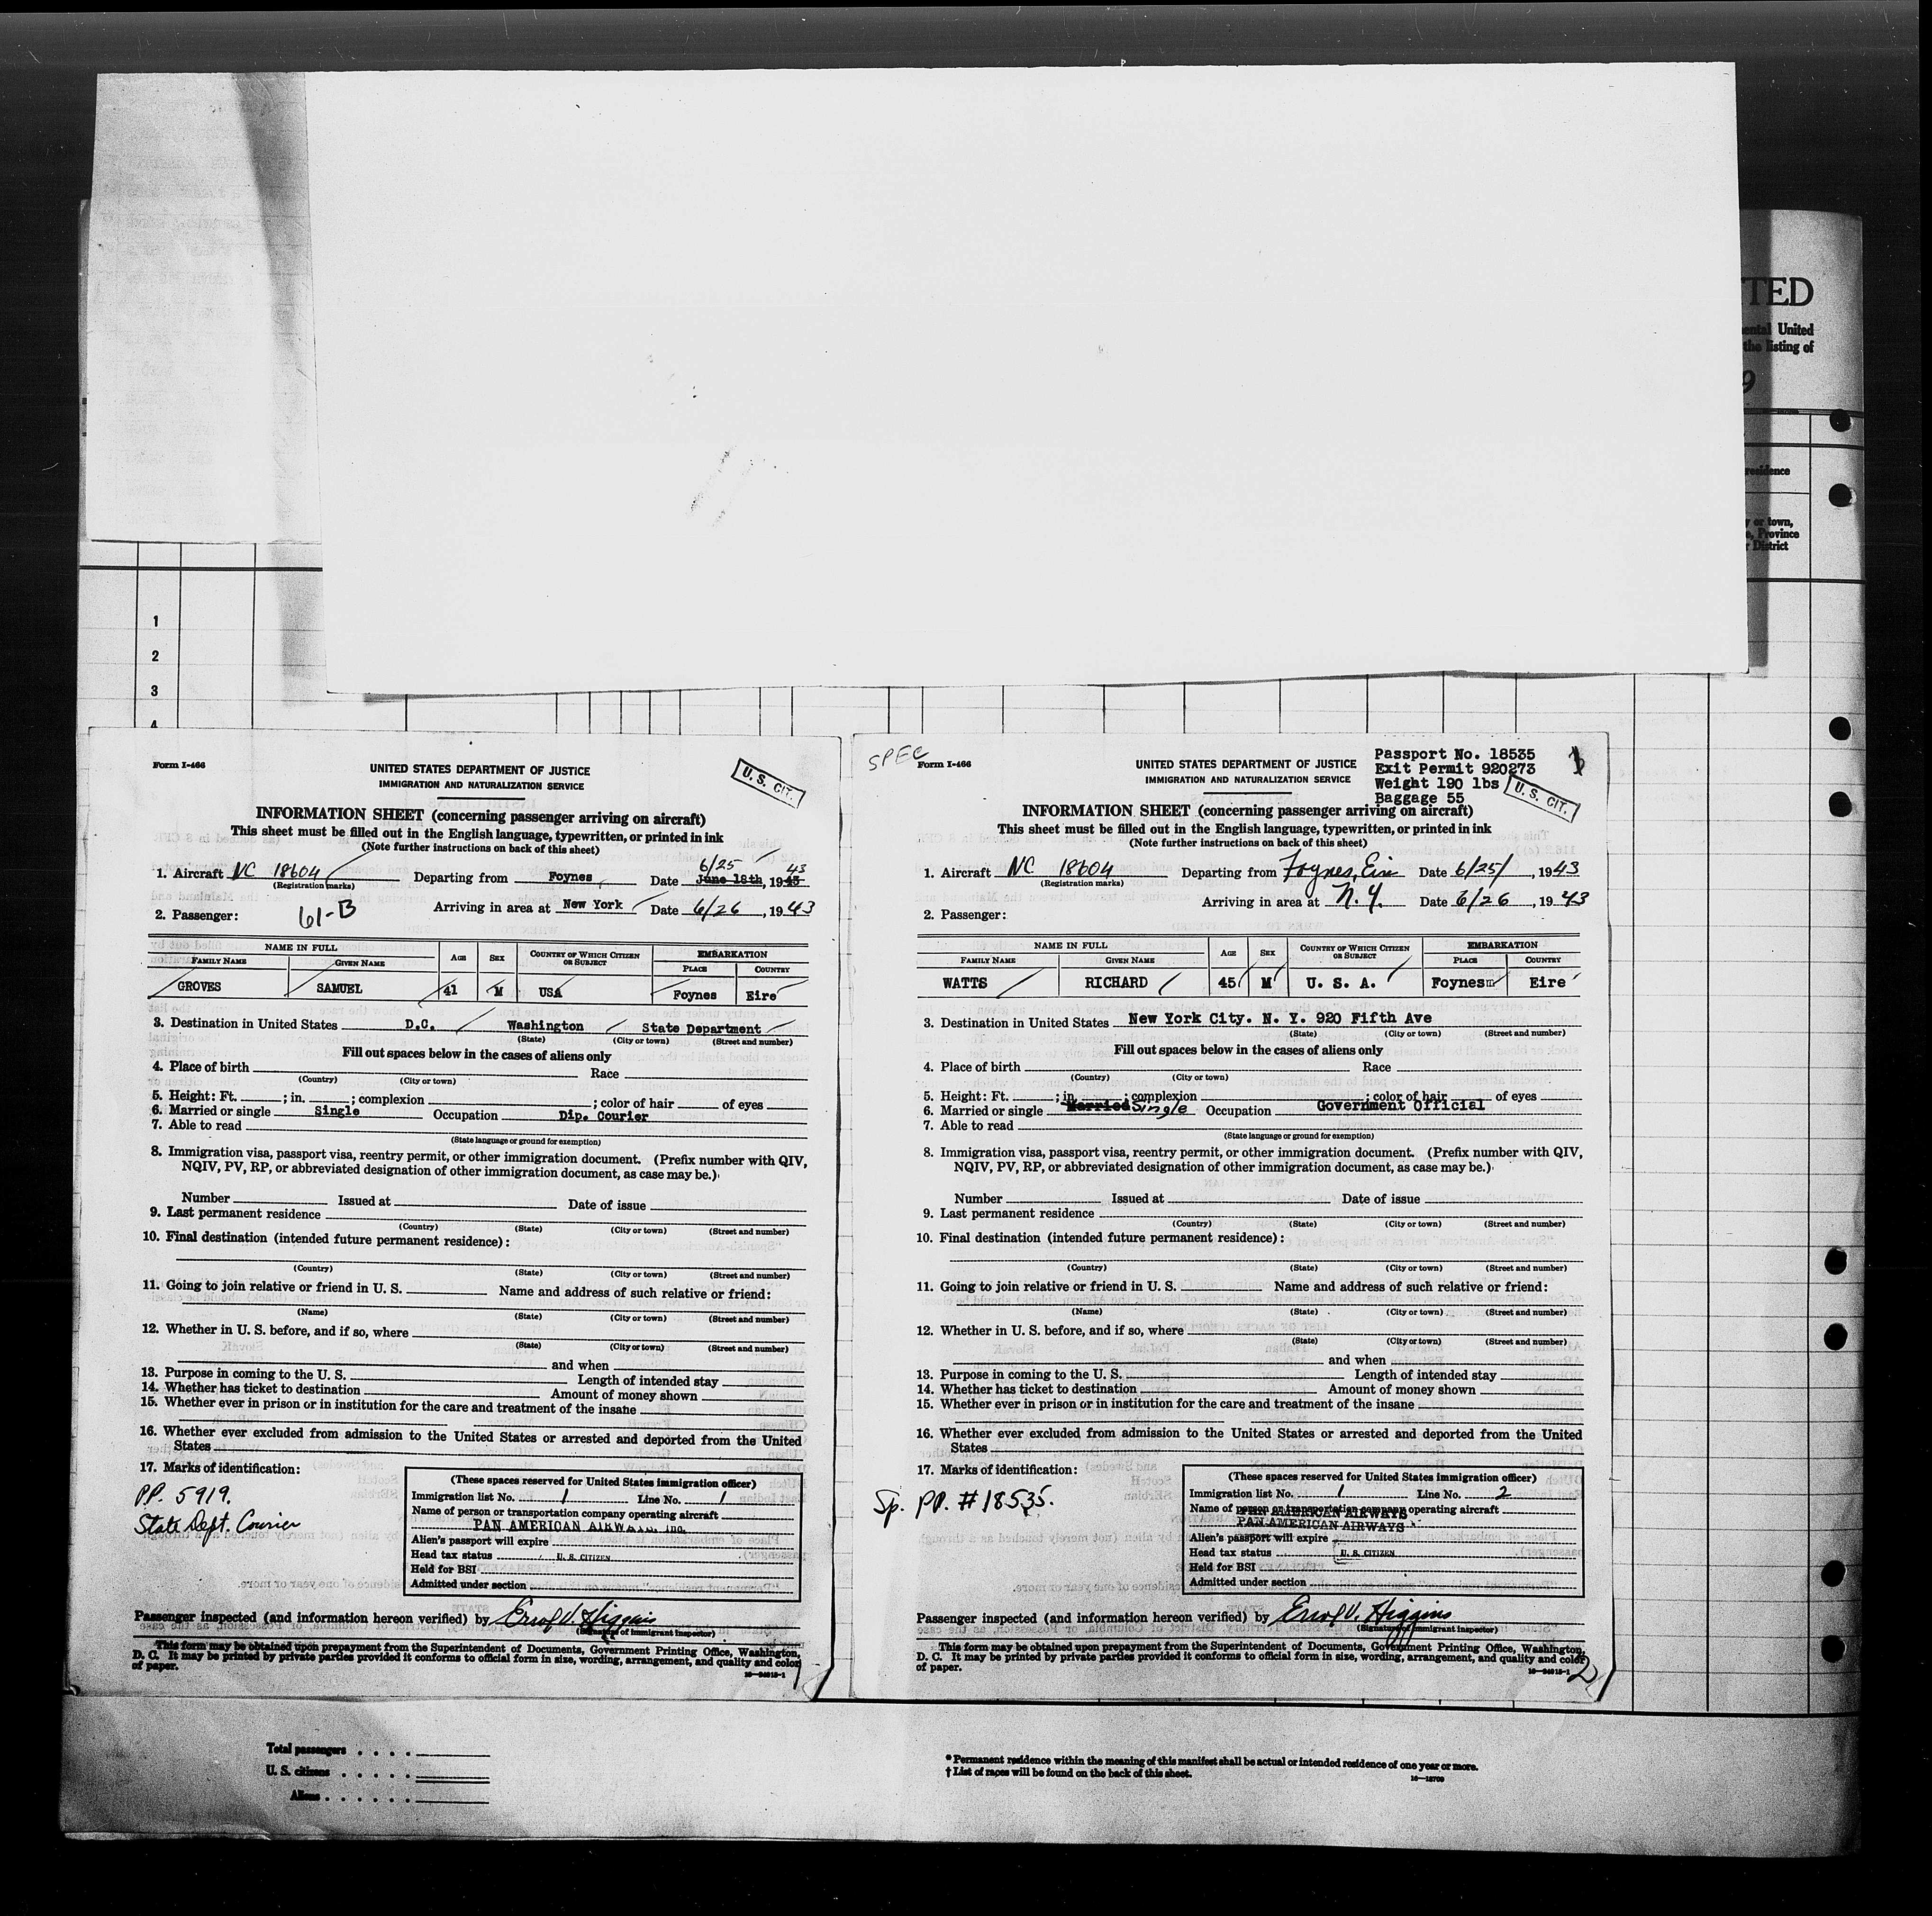 TED
ental United
the listing of
9
residence
y or town,
e, Province
r District
1
2
3
4
Form I-466
UNITED STATES DEPARTMENT OF JUSTICE
IMMIGRATION AND NATURALIZATION SERVICE
U. S. CIT.
INFORMATION SHEET (concerning passenger arriving on aircraft)
This sheet must be filled out in the English language, typewritten, or printed in ink
(Note further instructions on back of this sheet)
6/25 43
1. Aircraft NC 18604 Departing from Foynes Date June 18th, 1943
(Registration marks)
Arriving in area at New York Date 6/26, 1943
2. Passenger: 61-B
NAME IN FULL AGE SEX COUNTRY OF WHICH CITIZEN OR SUBJECT EMBARKATION
FAMILY NAME GIVEN NAME PLACE COUNTRY
GROVES SAMUEL 41 M USA Foynes Eire
3. Destination in United States D.C. Washington State Department
(State) (City or town) (Street and number)
Fill out spaces below in the cases of aliens only
4. Place of birth Race
(Country) (City or town)
5. Height: Ft. ; in. ; complexion ; color of hair of eyes
6. Married or single Single Occupation Dip. Courier
7. Able to read
(State language or ground for exemption)
8. Immigration visa, passport visa, reentry permit, or other immigration document. (Prefix number with QIV,
NQIV, PV, RP, or abbreviated designation of other immigration document, as case may be.)
Number Issued at Date of issue
9. Last permanent residence
(Country) (State) (City or town) (Street and number)
10. Final destination (intended future permanent residence):
(Country) (State) (City or town) (Street and number)
11. Going to join relative or friend in U. S. Name and address of such relative or friend:
(Name) (State) (City or town) (Street and number)
12. Whether in U. S. before, and if so, where
(State) (City or town) (Street and number)
and when
13. Purpose in coming to the U. S. Length of intended stay
14. Whether has ticket to destination Amount of money shown
15. Whether ever in prison or in institution for the care and treatment of the insane
16. Whether ever excluded from admission to the United States or arrested and deported from the United
States
17. Marks of identification:
PP. 5919.
State Dept. Courier
(These spaces reserved for United States immigration officer)
Immigration list No. 1 Line No. 1
Name of person or transportation company operating aircraft
PAN AMERICAN AIRWAYS, Inc.
Alien's passport will expire
Head tax status U. S. CITIZEN
Held for BSI
Admitted under section
Passenger inspected (and information hereon verified) by Errol V. Higgins
(Signature of immigrant inspector)
This form may be obtained upon prepayment from the Superintendent of Documents, Government Printing Office, Washington,
D. C. It may be printed by private parties provided it conforms to official form in size, wording, arrangement, and quality and color
of paper.
1
SPEC
Form I-466
UNITED STATES DEPARTMENT OF JUSTICE
IMMIGRATION AND NATURALIZATION SERVICE
Passport No. 18535
Exit Permit 920273
Weight 190 lbs
Baggage 55
U. S. CIT.
INFORMATION SHEET (concerning passenger arriving on aircraft)
This sheet must be filled out in the English language, typewritten, or printed in ink
(Note further instructions on back of this sheet)
1. Aircraft NC 18604 Departing from Foynes, Eire Date 6/25/, 1943
(Registration marks)
Arriving in area at N.Y. Date 6/26, 1943
2. Passenger:
NAME IN FULL AGE SEX COUNTRY OF WHICH CITIZEN OR SUBJECT EMBARKATION
FAMILY NAME GIVEN NAME PLACE COUNTRY
WATTS RICHARD 45 M U. S. A. Foynes Eire
3. Destination in United States New York City. N. Y. 920 Fifth Ave
(State) (City or town) (Street and number)
Fill out spaces below in the cases of aliens only
4. Place of birth Race
(Country) (City or town)
5. Height: Ft. ; in. ; complexion ; color of hair of eyes
6. Married or single Married Single Occupation Government Official
7. Able to read
(State language or ground for exemption)
8. Immigration visa, passport visa, reentry permit, or other immigration document. (Prefix number with QIV,
NQIV, PV, RP, or abbreviated designation of other immigration document, as case may be.)
Number Issued at Date of issue
9. Last permanent residence
(Country) (State) (City or town) (Street and number)
10. Final destination (intended future permanent residence):
(Country) (State) (City or town) (Street and number)
11. Going to join relative or friend in U. S. Name and address of such relative or friend:
(Name) (State) (City or town) (Street and number)
12. Whether in U. S. before, and if so, where
(State) (City or town) (Street and number)
and when
13. Purpose in coming to the U. S. Length of intended stay
14. Whether has ticket to destination Amount of money shown
15. Whether ever in prison or in institution for the care and treatment of the insane
16. Whether ever excluded from admission to the United States or arrested and deported from the United
States
17. Marks of identification:
Sp. PP. #18535.
(These spaces reserved for United States immigration officer)
Immigration list No. 1 Line No. 2
Name of person or transportation company operating aircraft
PAN AMERICAN AIRWAYS
Alien's passport will expire
Head tax status U. S. CITIZEN
Held for BSI
Admitted under section
Passenger inspected (and information hereon verified) by Errol V. Higgins
(Signature of immigrant inspector)
This form may be obtained upon prepayment from the Superintendent of Documents, Government Printing Office, Washington,
D. C. It may be printed by private parties provided it conforms to official form in size, wording, arrangement, and quality and color
of paper.
2
Total passengers
U. S. citizens
Aliens
* Permanent residence within the meaning of this manifest shall be actual or intended residence of one year or more.
† List of races will be found on the back of this sheet.